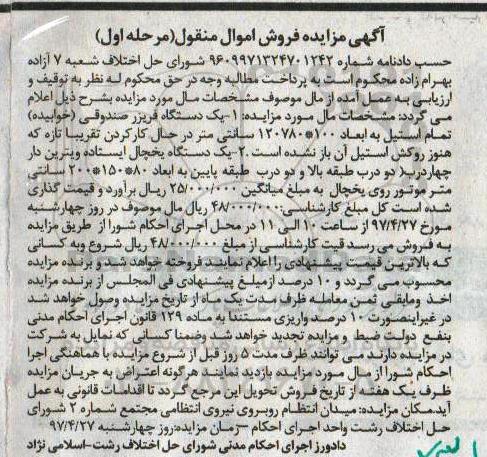 آگهی مزایده فروش اموال منقول(مرحله اول)
حسب دادنامه شماره ۹۶۰۹۹۷۱۳۲۴۷۰۱۲۴۲ شورای حل اختلاف شعبه ۷ آزاده
بهرام زاده محکوم است به پرداخت مطالبه وجه در حق محکوم له نظر به توقیف و
ارزیابی به عمل آمده از مال موصوف مشخصات مال مورد مزایده بشرح ذیل اعلام
می گردد: مشخصات مال مورد مزایده: ۱-یک دستگاه فریزر صندوقی (خوابیده)
تمام استیل به ابعاد ۱۰۰*۷۸۰*۱۲۰ سانتی متر در حال کارکردن تقریبا تازه که
هنوز روکش استیل آن باز نشده است .۲-یک دستگاه یخچال ایستاده ویترین دار
چهاردرب( دو درب طبقه بالا و دو درب طبقه پایین به ابعاد ۸۰*۱۵۰*۲۰۰ سانتی
متر موتور روی یخچال به مبلغ میانگین ۲۵/۰۰۰/۰۰۰ ریال برآورد و قیمت گذاری
شده است کل مبلغ کارشناسی:۴۸/۰۰۰/۰۰۰ ریال مال موصوف در روز چهارشنبه
مورخ ۹۷/۴/۲۷ از ساعت ۱۰ الی ۱۱ در محل اجرای احکام شورا از طریق مزایده
به فروش می رسد قیت کارشناسی از مبلغ ۴۸/۰۰۰/۰۰۰ ریال شروع وبه کسانی
که بالاترین قیمت پیشنهادی را اعلام نمایند فروخته خواهد شد و برنده مزایده
محسوب می گردد و ۱۰ درصد ازمبلغ پیشنهادی فی المجلس از برنده مزایده
اخذ ومابقی ثمن معامله ظرف مدت یک ماه از تاریخ مزایده وصول خواهد شد
در غیراینصورت ۱۰ درصد واریزی مستندا به ماده ۱۲۹ قانون اجرای احکام مدنی
بنفع دولت ضبط و مزایده تجدید خواهد شد وضمنا کسانی که تمایل به شرکت
در مزایده دارند می توانند ظرف مدت ۵ روز قبل از شروع مزایده با هماهنگی اجرا
احکام شورا از مال مورد مزایده بازدید نمایند هرگونه اعتراض به جریان مزایده
ظرف یک هفته از تاریخ فروش تحویل این مرجع گردد تا اقدامات قانونی به عمل
آید.مکان مزایده: میدان انتظام روبروی نیروی انتظامی مجتمع شماره ۲ شورای
حل اختلاف رشت واحد اجرای احکام –زمان مزایده:روز چهارشنبه ۹۷/۴/۲۷
دادورز اجرای احکام مدنی شورای حل اختلاف رشت-اسلامی نژاد